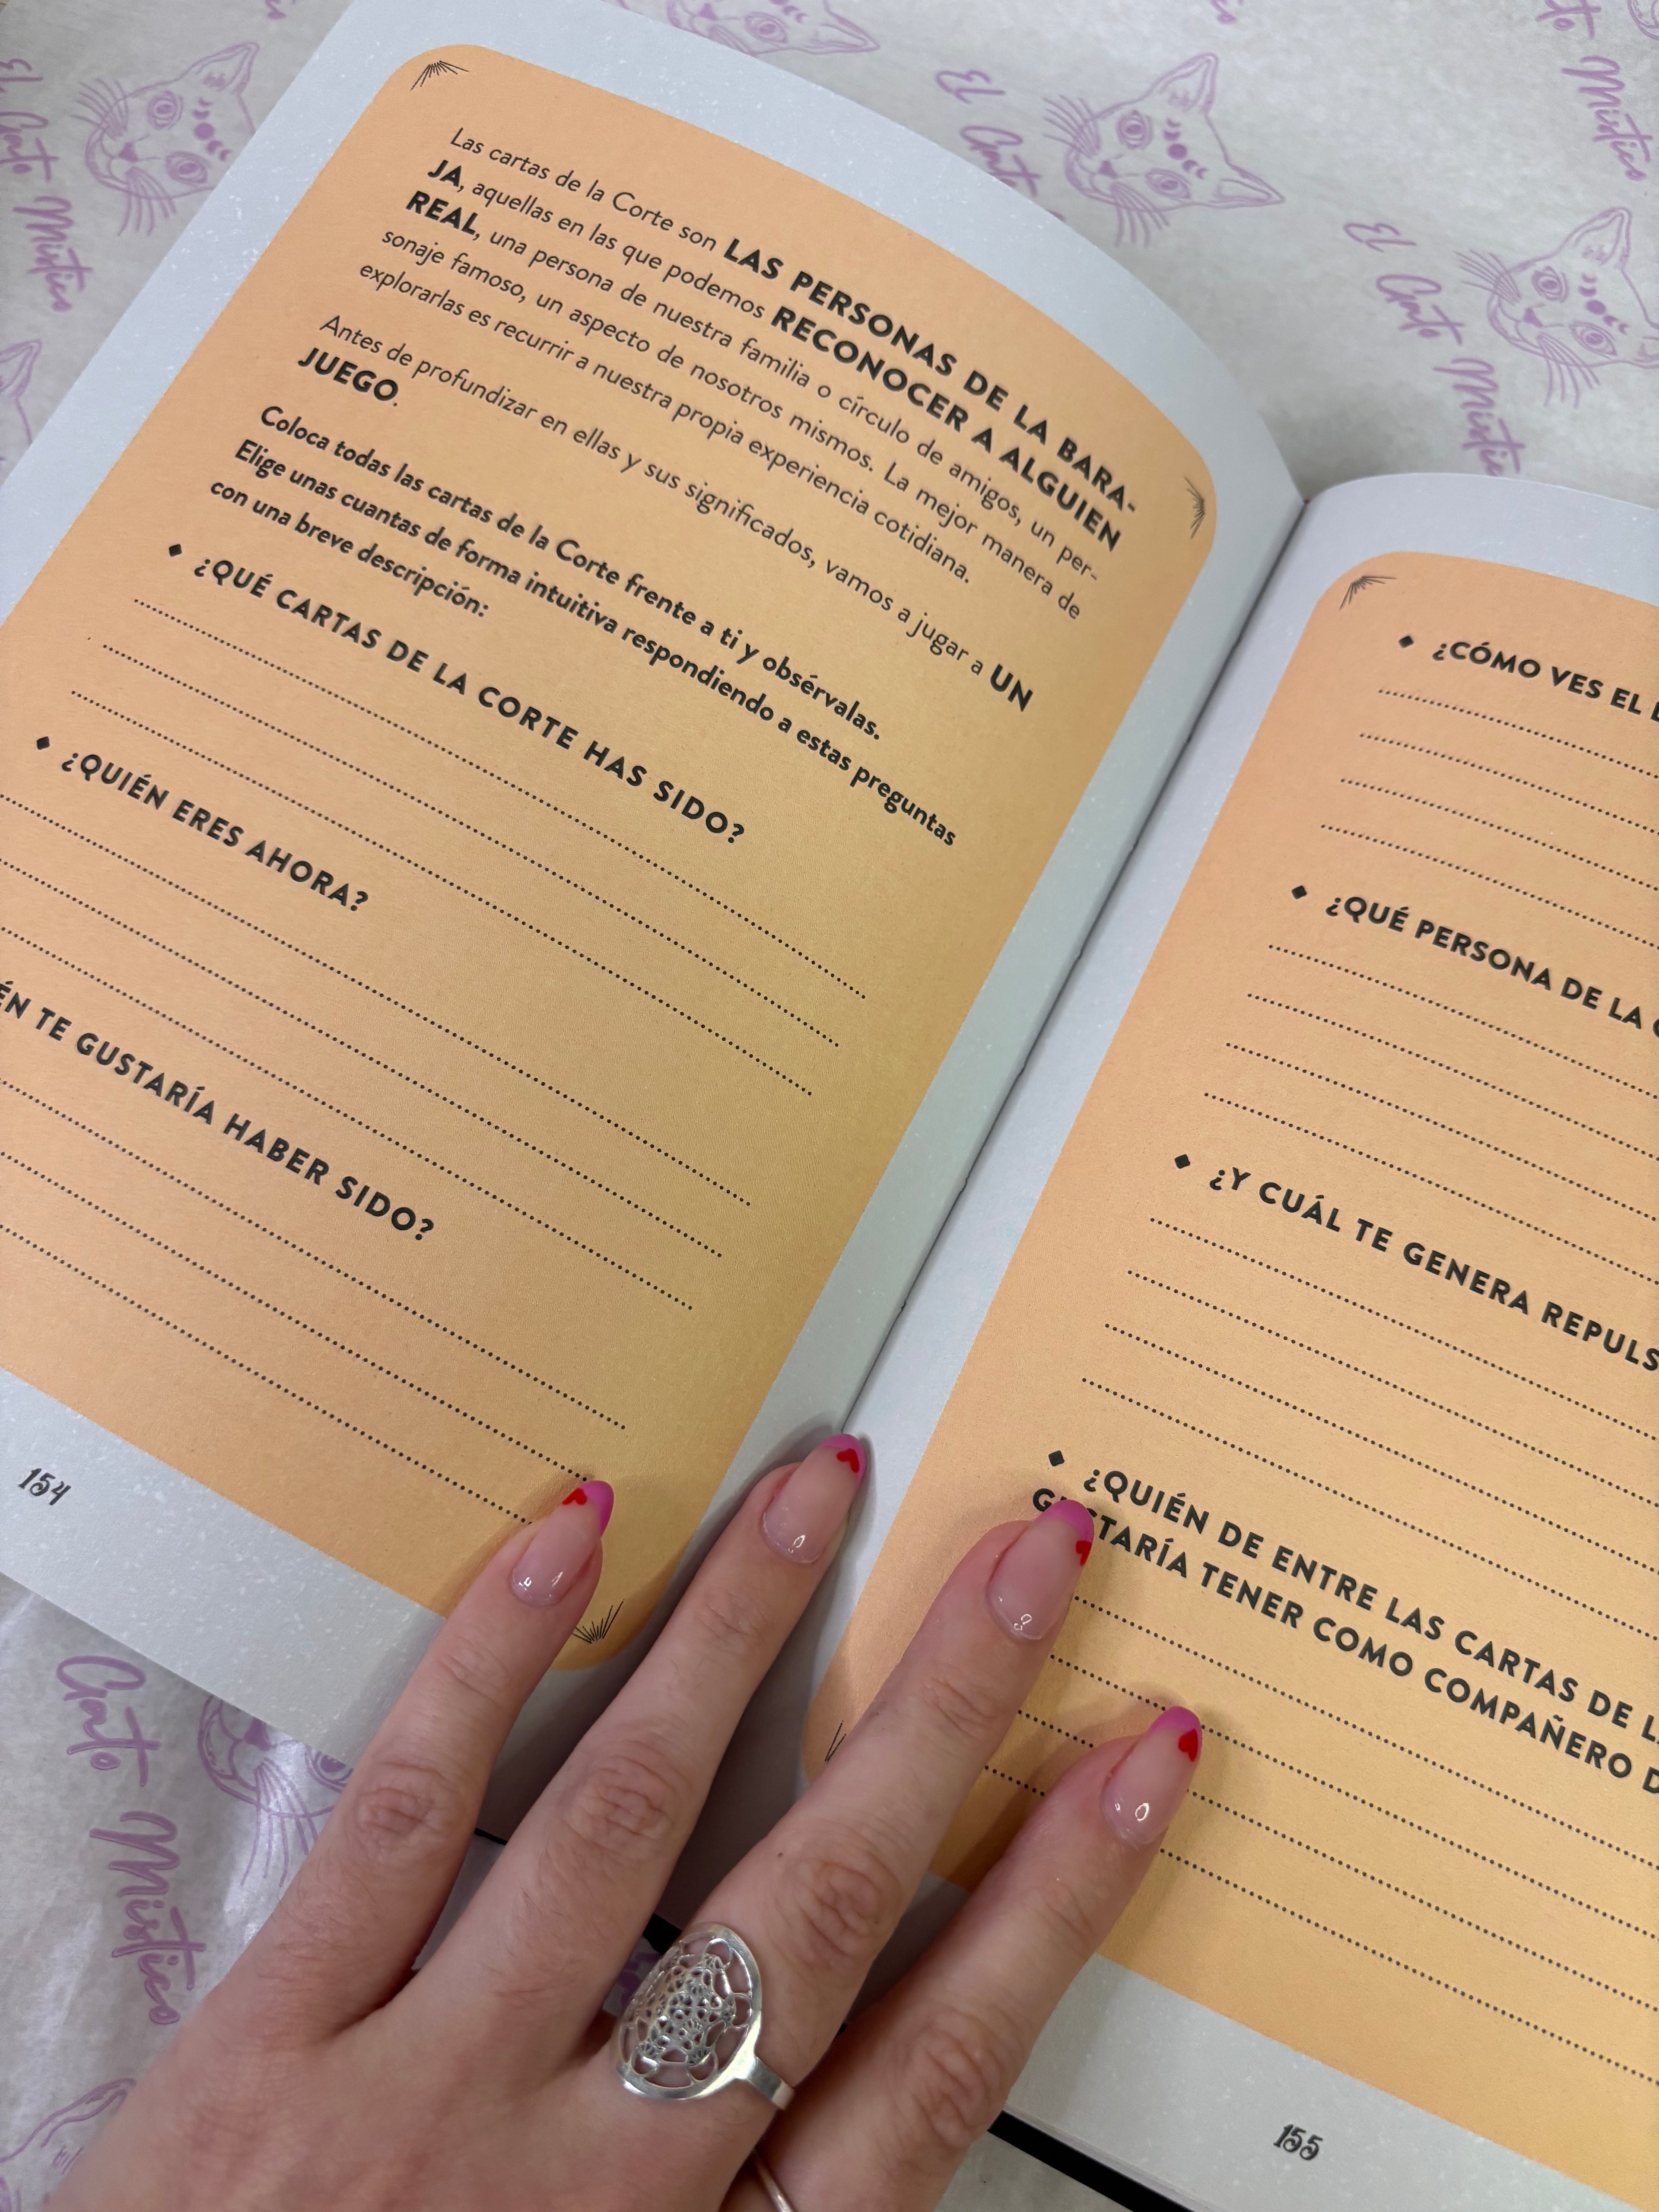 Las cartas de la Corte son LAS PERSONAS DE LA BARA-
JA, aquellas en las que podemos RECONOCER A ALGUIEN
REAL, una persona de nuestra familia o círculo de amigos, un per-
sonaje famoso, un aspecto de nosotros mismos. La mejor manera de
explorarlas es recurrir a nuestra propia experiencia cotidiana.
Antes de profundizar en ellas y sus significados, vamos a jugar a UN
JUEGO.
Coloca todas las cartas de la Corte frente a ti y obsérvalas.
Elige unas cuantas de forma intuitiva respondiendo a estas preguntas
con una breve descripción:
¿QUÉ CARTAS DE LA CORTE HAS SIDO?
¿QUIÉN ERES AHORA?
TE GUSTARÍA HABER SIDO?
154
¿CÓMO VES EL
¿QUÉ PERSONA DE LA
¿Y CUÁL TE GENERA
¿QUIÉN DE ENTRE LAS CARTAS DE
TENER COMO COMPAÑERO
155
El Gato Místico
El Gato Místico
El Gato Místico
Místico
Gato Místico